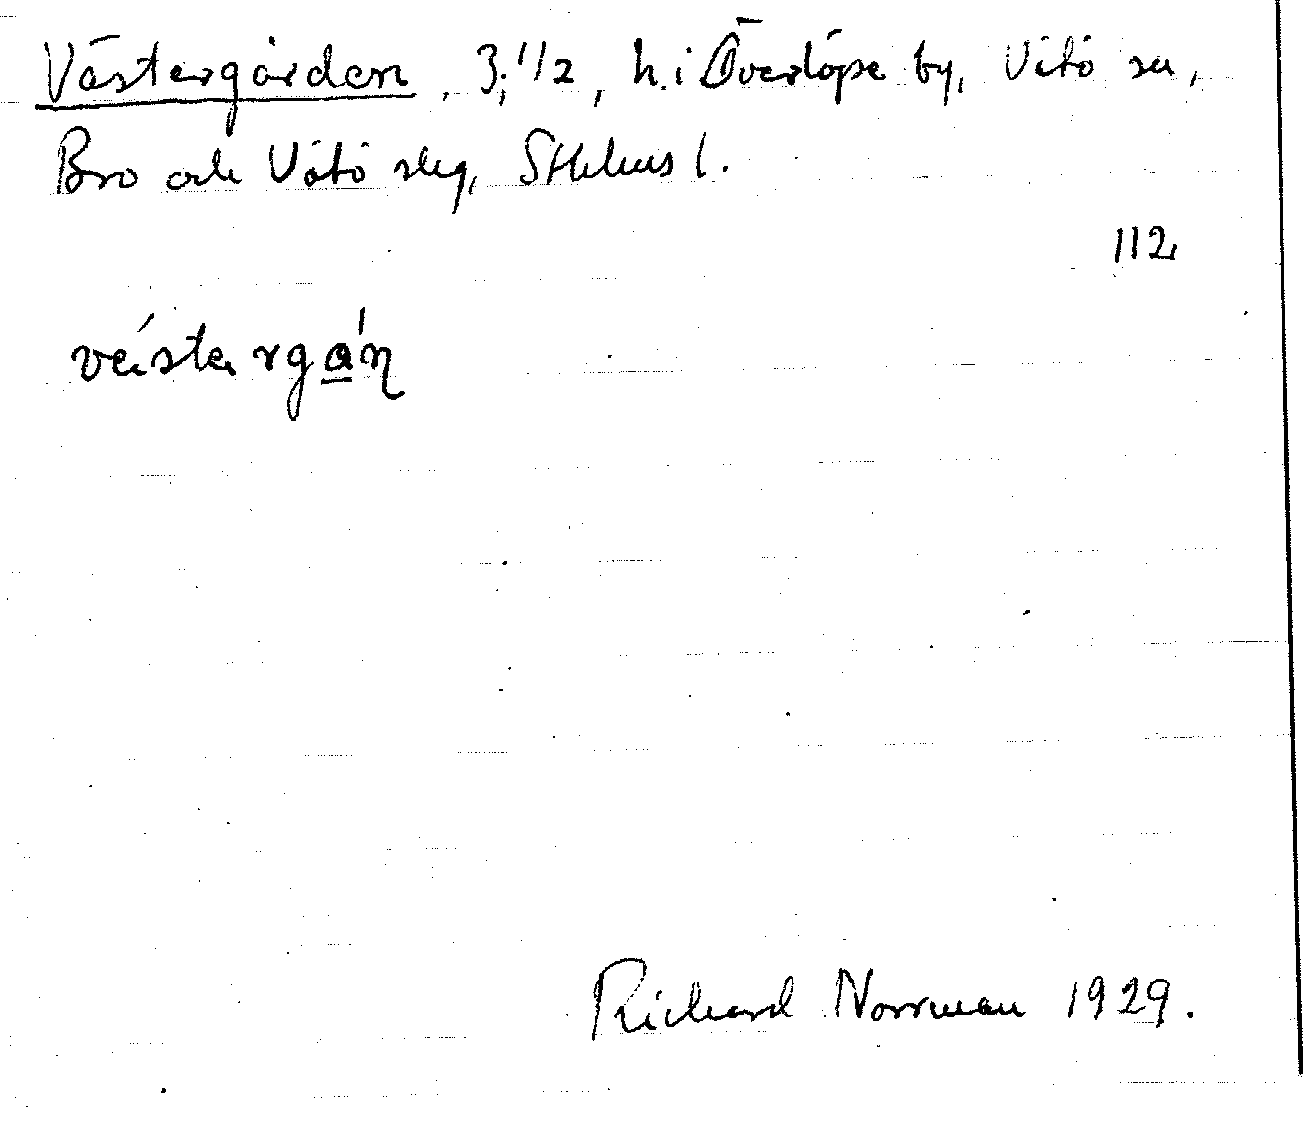 Västergården, 3:1/2, h. i Överlöpe by, Vätö sn,
Bro och Vätö skg, Sthlms l.
112
västərga̱ɳ
Richard Norrman 1929.